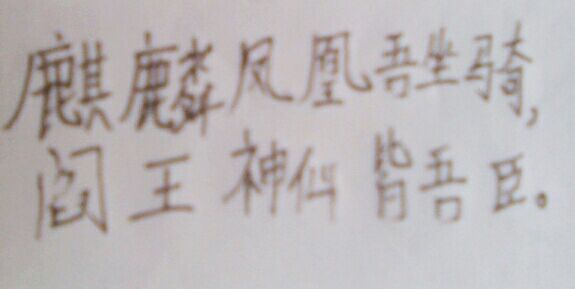 麒麟凤凰吾坐骑,
阎王神仙皆吾臣。